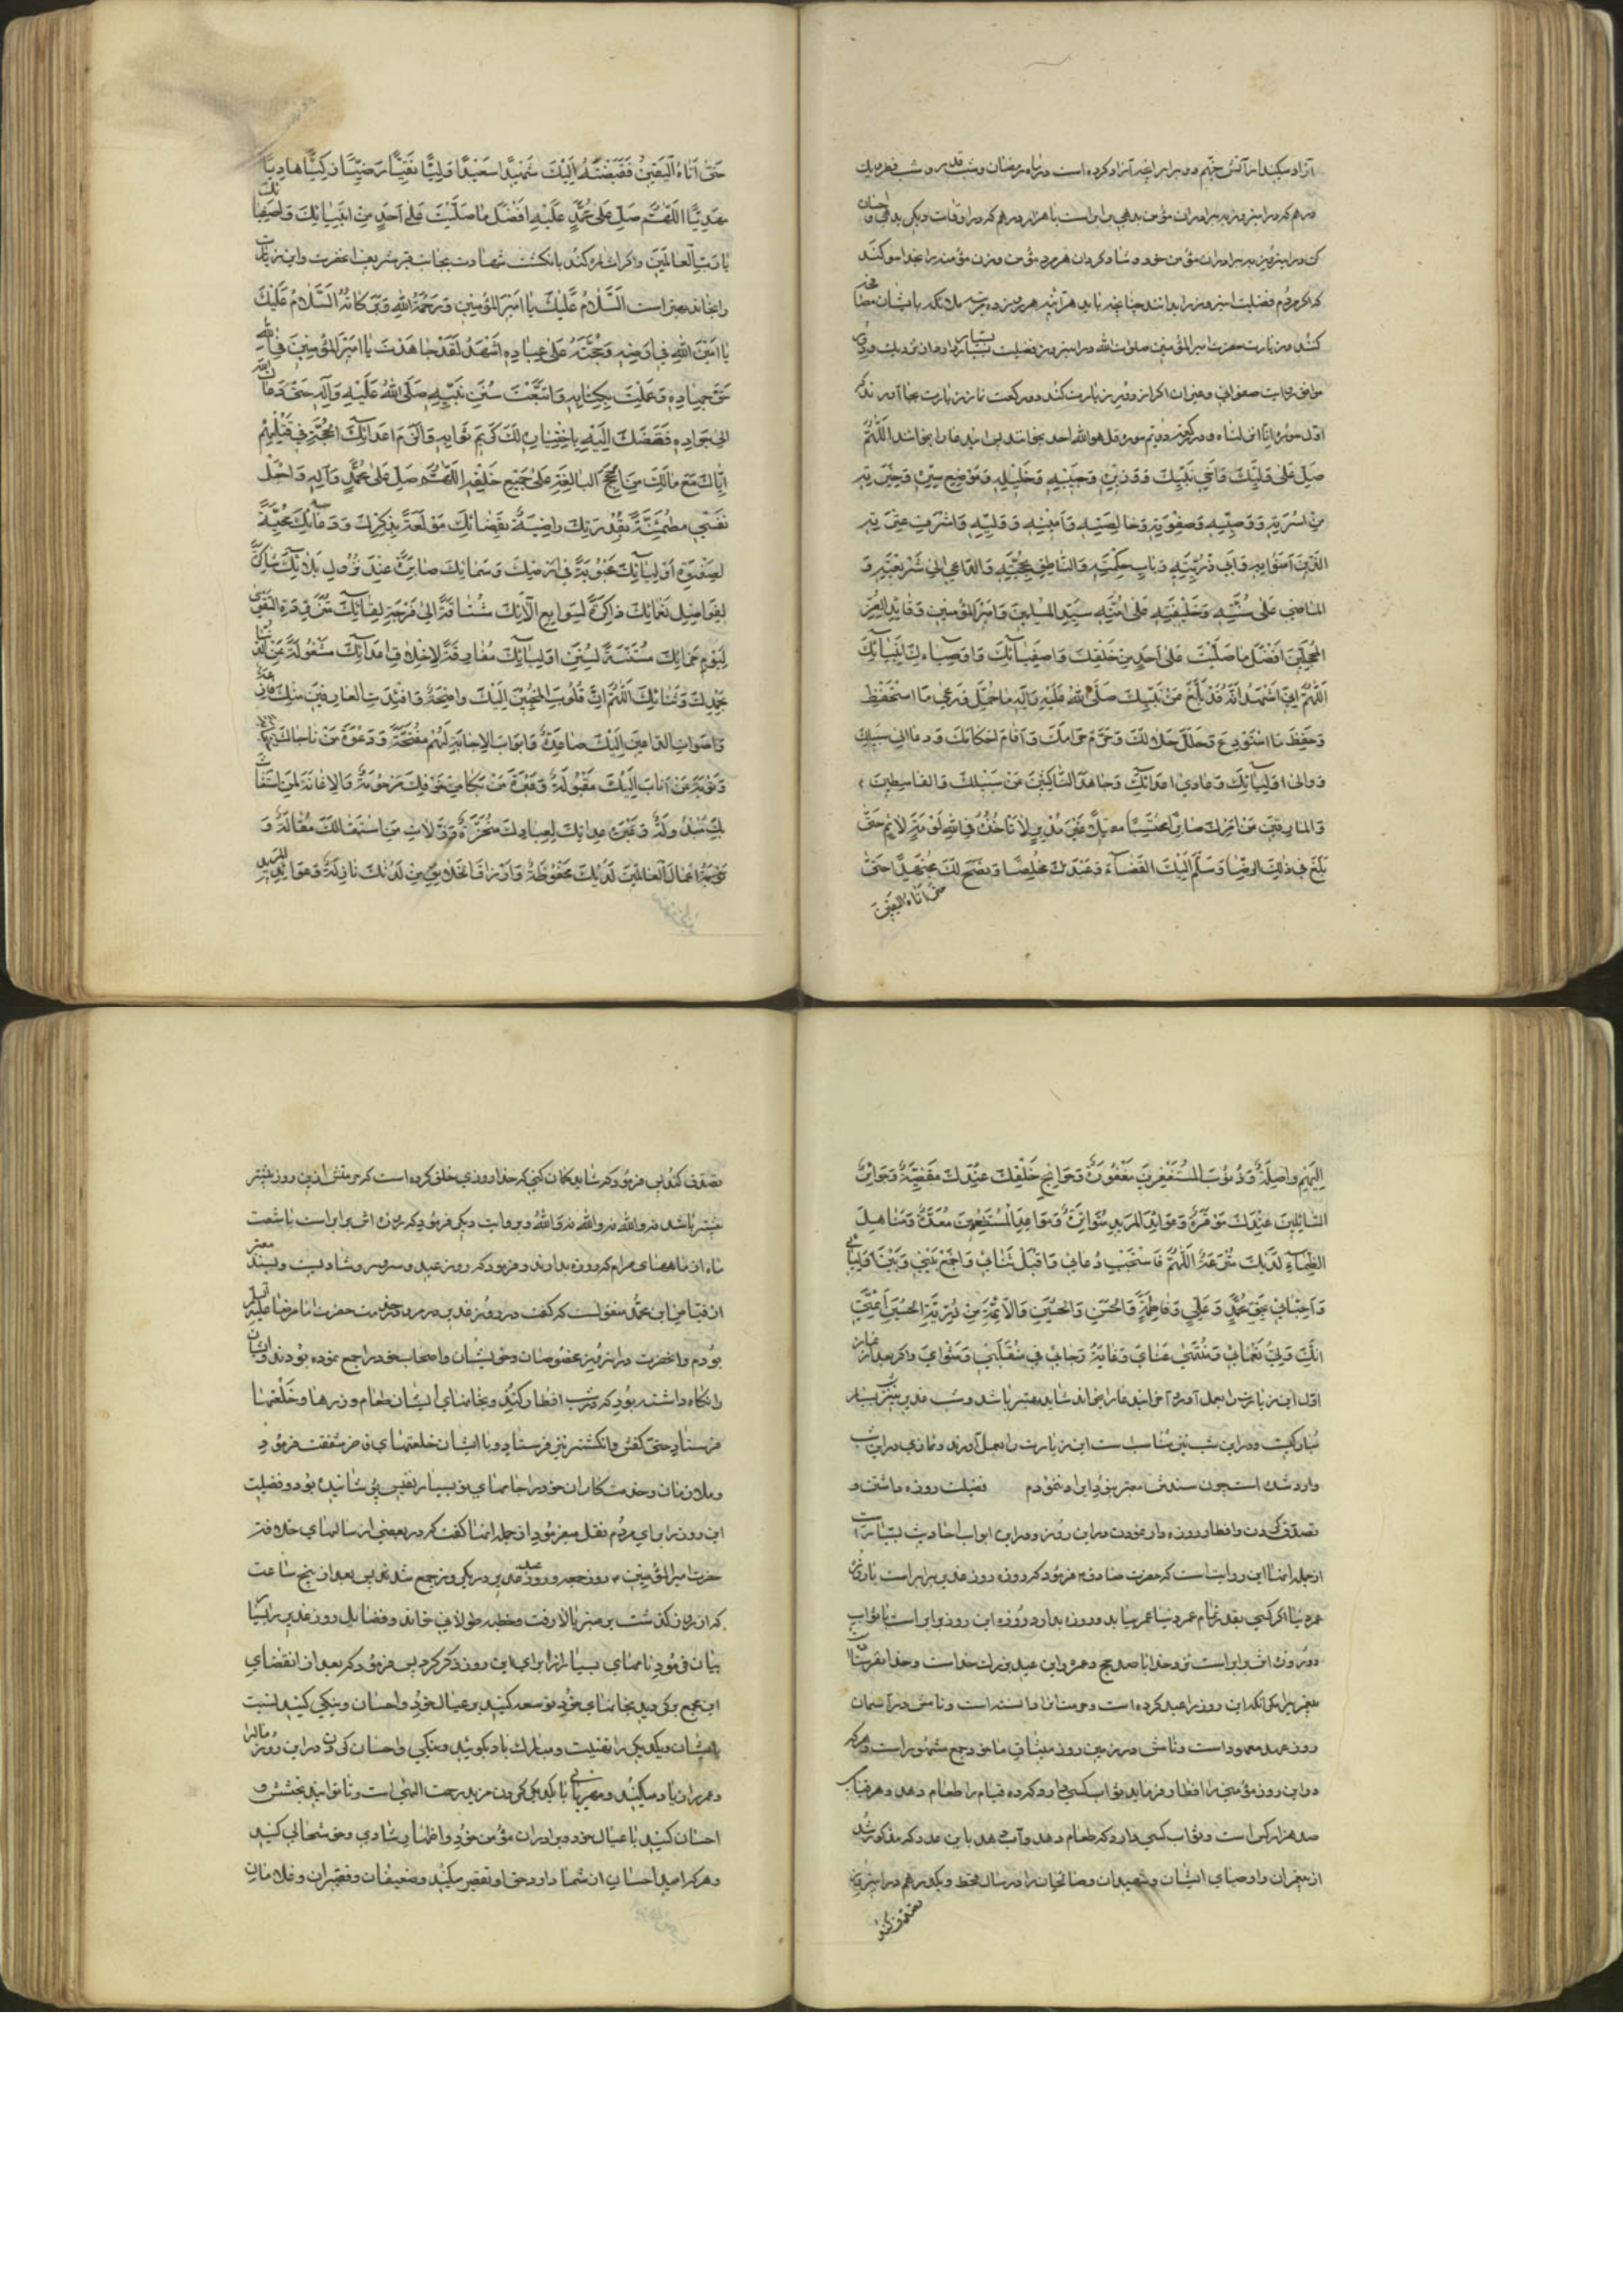 آزاد میکند از آتش جهنم دو برابر آنچه آزاد کرده است در ماه رمضان و شب قدر و شب فطر و یک
درهم که در این روز به برادران مؤمن بدهی برابر است با هزار درهم که در اوقات دیگر بدهی و احسان
کن در این روز به برادران مؤمن خود و شاد گردان هر مرد مؤمن و زن مؤمنه را بخدا سوگند
که اگر مردم فضیلت این روز را بدانند چنانچه باید هرآینه هر روز ده مرتبه ملائکه با ایشان مصافحه
کنند و زیارت حضرت امیرالمؤمنین صلوات الله در این روز فضیلت بسیار دارد
موافق روایت صفوانی اگر از دور زیارت کند دو رکعت نماز زیارت بجا آورند که
اول سوره انا انزلناه و در رکعت دویم سوره قل هو الله احد بخوانند پس این دعا را بخوانند اللَّهُمَّ
صَلِّ عَلَى وَلِيِّكَ وَأَخِي نَبِيِّكَ وَوَزِيرِهِ وَحَبِيبِهِ وَخَلِيلِهِ وَمَوْضِعِ سِرِّهِ وَخِيَرَتِهِ
مِنْ أُسْرَتِهِ وَوَصِيِّهِ وَصَفْوَتِهِ وَخَالِصَتِهِ وَأَمِينِهِ وَوَلِيِّهِ وَأَشْرَفِ عِتْرَتِهِ
الَّذِينَ آمَنُوا بِهِ وَأَبِي ذُرِّيَّتِهِ وَبَابِ حِكْمَتِهِ وَالنَّاطِقِ بِحُجَّتِهِ وَالدَّاعِي إِلَى شَرِيعَتِهِ وَ
الْمَاضِي عَلَى سُنَّتِهِ وَخَلِيفَتِهِ عَلَى أُمَّتِهِ سَيِّدِ الْمُسْلِمِينَ وَأَمِيرِ الْمُؤْمِنِينَ وَقَائِدِ الْغُرِّ
الْمُحَجَّلِينَ أَفْضَلَ مَا صَلَّيْتَ عَلَى أَحَدٍ مِنْ خَلْقِكَ وَأَصْفِيَائِكَ وَأَوْصِيَاءِ أَنْبِيَائِكَ
اللَّهُمَّ إِنِّي أَشْهَدُ أَنَّهُ قَدْ بَلَّغَ عَنْ نَبِيِّكَ صَلَّى اللهُ عَلَيْهِ وَآلِهِ مَا حُمِّلَ وَرَعَى مَا اسْتُحْفِظَ
وَحَفِظَ مَا اسْتُودِعَ وَحَلَّلَ حَلَالَكَ وَحَرَّمَ حَرَامَكَ وَأَقَامَ أَحْكَامَكَ وَدَعَا إِلَى سَبِيلِكَ
وَوَالَى أَوْلِيَاءَكَ وَعَادَى أَعْدَاءَكَ وَجَاهَدَ النَّاكِثِينَ عَنْ سَبِيلِكَ وَالْقَاسِطِينَ
وَالْمَارِقِينَ عَنْ أَمْرِكَ صَابِرًا مُحْتَسِبًا مُقْبِلًا غَيْرَ مُدْبِرٍ لَا تَأْخُذُهُ فِي اللهِ لَوْمَةُ لَائِمٍ حَتَّى
بَلَغَ فِي ذَلِكَ الرِّضَا وَسَلَّمَ إِلَيْكَ الْقَضَاءَ وَعَبَدَكَ مُخْلِصًا وَنَصَحَ لَكَ مُجْتَهِدًا حَتَّى
حتی اتاه الیقین
حَتَّى أَتَاهُ الْيَقِينُ فَقَبَضْتَهُ إِلَيْكَ شَهِيدًا سَعِيدًا وَلِيًّا تَقِيًّا رَضِيًّا زَكِيًّا هَادِيًا
مَهْدِيًّا اللَّهُمَّ صَلِّ عَلَى مُحَمَّدٍ عَلَيْهِ أَفْضَلَ مَا صَلَّيْتَ عَلَى أَحَدٍ مِنْ أَنْبِيَائِكَ وَأَصْفِيَائِكَ
يَا رَبَّ الْعَالَمِينَ و اگر اشاره کند بانگشت شهادت بجانب قبر شریف آنحضرت و این زیارت
را بخواند بهتر است السَّلَامُ عَلَيْكَ يَا أَمِيرَ الْمُؤْمِنِينَ وَرَحْمَةُ اللهِ وَبَرَكَاتُهُ السَّلَامُ عَلَيْكَ
يَا أَمِينَ اللهِ فِي أَرْضِهِ وَحُجَّتَهُ عَلَى عِبَادِهِ أَشْهَدُ لَقَدْ جَاهَدْتَ يَا أَمِيرَ الْمُؤْمِنِينَ فِي اللهِ
حَقَّ جِهَادِهِ وَعَمِلْتَ بِكِتَابِهِ وَاتَّبَعْتَ سُنَنَ نَبِيِّهِ صَلَّى اللهُ عَلَيْهِ وَآلِهِ حَتَّى دَعَاكَ اللهُ
إِلَى جِوَارِهِ فَقَبَضَكَ إِلَيْهِ بِاخْتِيَارِهِ لَكَ كَرِيمَ ثَوَابِهِ وَأَلْزَمَ أَعْدَاءَكَ الْحُجَّةَ فِي قَتْلِهِمْ
إِيَّاكَ مَعَ مَا لَكَ مِنَ الْحُجَجِ الْبَالِغَةِ عَلَى جَمِيعِ خَلْقِهِ اللَّهُمَّ صَلِّ عَلَى مُحَمَّدٍ وَآلِهِ وَاجْعَلْ
نَفْسِي مُطْمَئِنَّةً بِقَدَرِكَ رَاضِيَةً بِقَضَائِكَ مُولَعَةً بِذِكْرِكَ وَدُعَائِكَ مُحِبَّةً
لِصَفْوَةِ أَوْلِيَائِكَ مَحْبُوبَةً فِي أَرْضِكَ وَسَمَائِكَ صَابِرَةً عِنْدَ نُزُولِ بَلَائِكَ شَاكِرَةً
لِفَوَاضِلِ نَعْمَائِكَ ذَاكِرَةً لِسَوَابِغِ آلَائِكَ مُشْتَاقَةً إِلَى فَرْحَةِ لِقَائِكَ مُتَزَوِّدَةً التَّقْوَى
لِيَوْمِ جَزَائِكَ مُسْتَنَّةً بِسُنَنِ أَوْلِيَائِكَ مُفَارِقَةً لِأَخْلَاقِ أَعْدَائِكَ مَشْغُولَةً عَنِ الدُّنْيَا
بِحَمْدِكَ وَثَنَائِكَ اللَّهُمَّ إِنَّ قُلُوبَ الْمُخْبِتِينَ إِلَيْكَ وَاضِحَةٌ وَأَفْئِدَةَ الْعَارِفِينَ مِنْكَ فَازِعَةٌ
وَأَصْوَاتَ الدَّاعِينَ إِلَيْكَ صَاعِدَةٌ وَأَبْوَابَ الْإِجَابَةِ لَهُمْ مُفَتَّحَةٌ وَدَعْوَةَ مَنْ نَاجَاكَ
وَتَوْبَةَ مَنْ أَنَابَ إِلَيْكَ مَقْبُولَةٌ وَعَبْرَةَ مَنْ بَكَى مِنْ خَوْفِكَ مَرْحُومَةٌ وَالْإِغَاثَةَ لِمَنِ اسْتَغَاثَ
بِكَ مَبْذُولَةٌ وَعِدَاتِكَ لِعِبَادِكَ مُنْجَزَةٌ وَزَلَّاتِ مَنِ اسْتَقَالَكَ مُقَالَةٌ وَ
أَعْمَالَ الْعَامِلِينَ لَدَيْكَ مَحْفُوظَةٌ وَأَرْزَاقَ الْخَلَائِقِ مِنْ لَدُنْكَ نَازِلَةٌ وَعَوَائِدَ الْمَزِيدِ
إِلَيْهِمْ وَاصِلَةٌ وَذُنُوبَ الْمُسْتَغْفِرِينَ مَغْفُورَةٌ وَحَوَائِجَ خَلْقِكَ عِنْدَكَ مَقْضِيَّةٌ وَجَوَائِزَ
السَّائِلِينَ عِنْدَكَ مُوَفَّرَةٌ وَعَوَائِدَ الْمَزِيدِ مُتَوَاتِرَةٌ وَمَوَائِدَ الْمُسْتَطْعِمِينَ مُعَدَّةٌ وَمَنَاهِلَ
الظِّمَاءِ لَدَيْكَ مُتْرَعَةٌ اللَّهُمَّ فَاسْتَجِبْ دُعَائِي وَاقْبَلْ ثَنَائِي وَاجْمَعْ بَيْنِي وَبَيْنَ أَوْلِيَائِي
وَأَحِبَّائِي بِحَقِّ مُحَمَّدٍ وَعَلِيٍّ وَفَاطِمَةَ وَالْحَسَنِ وَالْحُسَيْنِ وَالْأَئِمَّةِ مِنْ ذُرِّيَّةِ الْحُسَيْنِ
إِنَّكَ وَلِيُّ نَعْمَائِي وَمُنْتَهَى مُنَايَ وَغَايَةُ رَجَائِي فِي مُنْقَلَبِي وَمَثْوَايَ و اگر بعد از نماز
اول این زیارت را بعمل آورد آخر این دعا را بخواند شاید بهتر باشد و شب غدیر نیز بسیار
مبارکیست و در این شب نیز مناسب است این زیارت را بعمل آورند و نمازی در این شب
وارد شده است چون سندش معتبر نبود ایراد ننمودم فضیلت روزه داشتن و
تصدق کردن و افطار روزه دار نمودن در این روز و در این ابواب احادیث بسیار است
از جمله اینها این روایت است که حضرت صادق فرمود که روزه روز غدیر برابر است با روزه
عمر دنیا اگر کسی بقدر تمام عمر دنیا عمر بیابد و روزه بدارد روزه این روز برابر است با ثواب
و روزه اش برابر است نزد خدا با صد حج و عمره و این عید بزرگ خداست و خدا نفرستاد
پیغمبری را مگر آنکه این روز را عید کرده است و حرمت آنرا دانسته است و نامش در آسمان
روز عهد معهود است و نامش در زمین روز میثاق ماخوذ و جمع مشهود است و هر که
در این روز مؤمنی را افطار فرماید ثواب کسی دارد که ده فیام را طعام دهد و هر فیام
صد هزار کس است و ثواب کسی دارد که طعام دهد و آب دهد باین عدد که مذکور شد
از پیغمبران و اوصیای ایشان و شهیدان و صالحان را در سال قحط و یکدرهم در این روز
تصدق کند
تصدق کند پس فرمود که شاید گمان کنی که خدا روزی خلق کرده است که حرمتش از این روز بیشتر
بیشتر باشد نه والله نه والله نه والله و بروایت دیگر فرمود که روزه اش برابر است با شصت
ماه از ماههای حرام که روزه بدارند و فرمود که روز عید و سرور و شادیست و بسند معتبر
از فیاض ابن محمد منقولست که گفت در روز غدیر در مرو در خدمت حضرت امام رضا علیه السلام
بودم و آنحضرت در این روز مخصوصان و خویشان و اصحاب خود را جمع نموده بودند و ایشان
را نگاه داشته بود که در شب افطار کنند و بخانهای ایشان طعام و زرها و خلعتها
فرستاد حتی کفش و انگشتر نیز فرستاد و با ایشان خلعتهای فاخر شفقت فرمود
و ملازمان و خدمتکاران خود را جامهای نو بسیار نفیس پوشانیده بود و فضیلت
این روز را برای مردم نقل میفرمود از جمله اینها گفت که در بعضی از سالهای خلافت
حضرت امیرالمؤمنین روز جمعه و روز عید غدیر در یکروز جمع شد پس بعد از پنج ساعت
که از روز گذشت بر منبر بالا رفت و خطبه طولانی خواند و فضایل روز غدیر را بسیار
بیان فرمود نامهای بسیار از برای این روز ذکر کرد پس فرمود که بعد از انقضای
این مجمع برگردید بخانهای خود توسعه کنید بر عیال خود و احسان و نیکی کنید نسبت
بایشان و یکدیگر را تهنیت و مبارک باد بگویید و نیکی و احسان کردن در این روز مال را
و عمر را زیاد میکند و مهربانی با یکدیگر کردن مزید رحمت الهی است و تا توانید بخشش و
احسان کنید با عیال خود و برادران مؤمن خود و اظهار شادی و خوشحالی کنید
و هر که امید احسان از شما دارد حق او تقصیر مکنید و ضعیفان و فقیران و غلامان